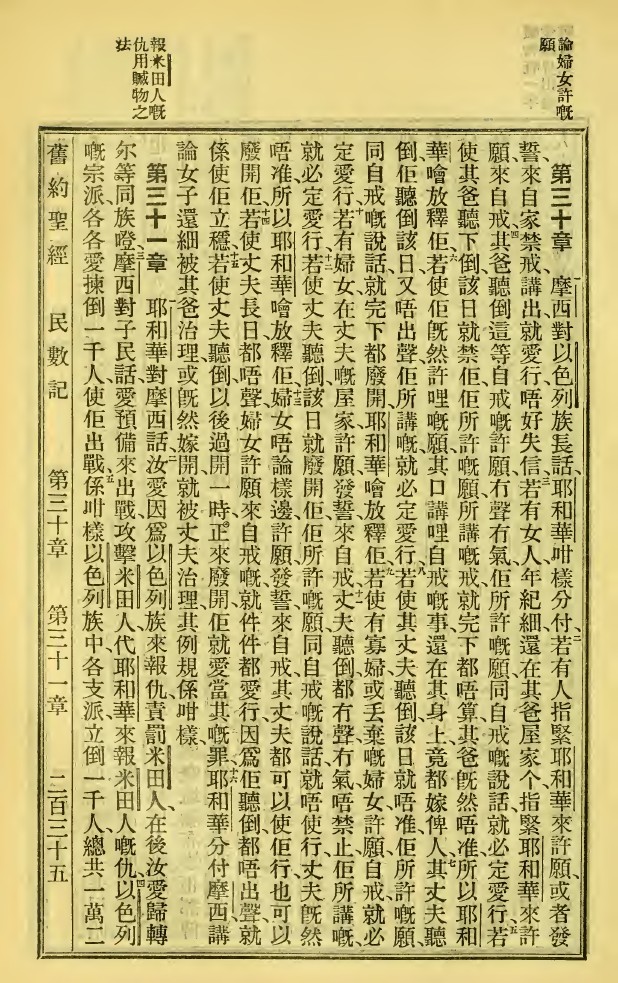 論婦女許嘅
願
報米田人嘅
仇用贓物之
法
第三十章 摩西對以色列族長話、耶和華咁樣分付、二若有人指緊耶和華來許願、或者發
誓來自家禁戒、講出就愛行、唔好失信、三若有女人、年紀細還在其爸屋家个、指緊耶和華來許
願來自戒、四其爸聽倒這等自戒嘅許願、冇聲冇氣、佢所許嘅願、同自戒嘅說話、就必定愛行、五若
使其爸聽下倒、該日就禁佢、佢所許嘅願、所講嘅戒、就完下都唔算、其爸旣然唔准、所以耶和
華噲放釋佢、六若使佢旣然許哩嘅願、其口講哩自戒嘅事、還在其身上、竟都嫁俾人、七其丈夫聽
倒、佢聽倒該日又唔出聲、佢所講嘅就必定愛行、八若使其丈夫聽倒該日、就唔准佢所許嘅願、
同自戒嘅說話、就完下都廢開、耶和華噲放釋佢、九若使有寡婦或丢棄嘅婦女、許願自戒、就必
定愛行、十若有婦女在丈夫嘅屋家許願、發誓來自戒、十一丈夫聽倒、都冇聲冇氣、唔禁止佢所講嘅、
就必定愛行、十二若使丈夫聽倒、該日就廢開佢、佢所許嘅願、同自戒嘅說話、就唔使行、丈夫旣然
唔准、所以耶和華噲放釋佢、十三婦女唔論樣邊許願、發誓來自戒、其丈夫都可以使佢行、也可以
廢開佢、十四若使丈夫長日都唔聲、婦女許願來自戒嘅、就件件都愛行、因爲佢聽倒、都唔出聲、就
係使佢立穩、十五若使丈夫聽倒、以後過開一時、正來廢開佢、就愛當其嘅罪、十六耶和華分付摩西、講
論女子還細、被其爸治理、或旣然嫁開、就被丈夫治理、其例規係咁樣、
第三十一章 一耶和華對摩西話、二汝愛因爲以色列族來報仇、責罰米田人、在後汝愛歸轉
尔等同族嗌、三摩西對子民話、愛預備來出戰、攻擊米田人、代耶和華來報米田人嘅仇、四以色列
嘅宗派、各各愛揀倒一千人、使佢出戰、五係咁樣以色列族中、各支派立倒一千人、總共一萬二
舊約聖經 民數記 第三十章 第三十一章 二百三十五